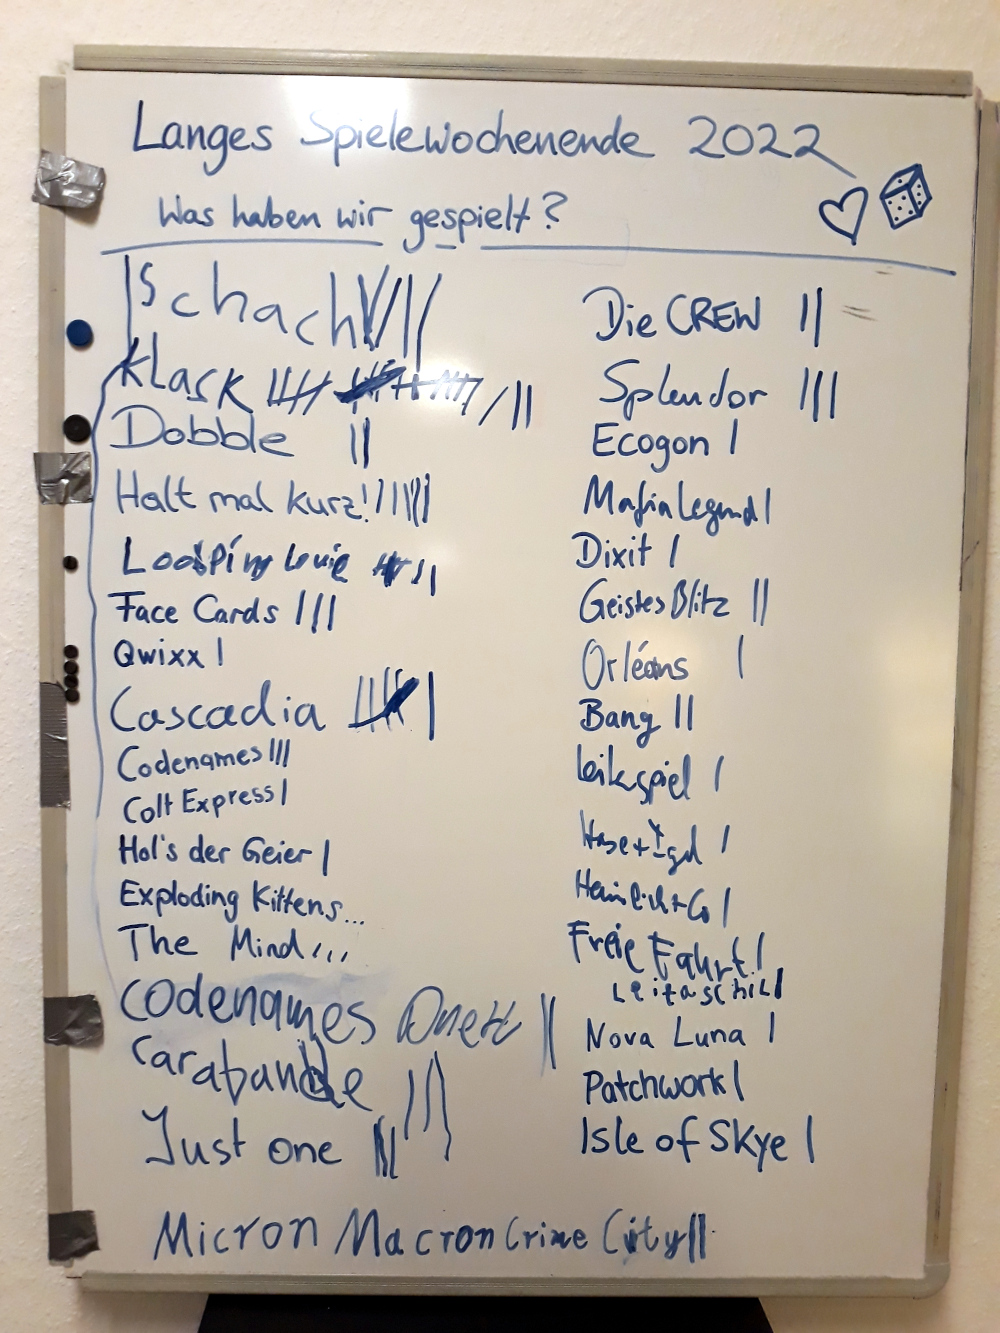 Langes Spielewochenende 2022
Was haben wir gespielt?
Schach
Klask
Dobble
Halt mal kurz!
Looping Louie
Face Cards |||
Qwixx |
Cascadia
Codenames |||
Colt Express |
Hol's der Geier |
Exploding Kittens...
The Mind ,,,
Codenames Duett ||
Carabande |||
Just one
Micron Macron Crime City ||
Die CREW ||
Splendor |||
Ecogon |
Mafia Legend |
Dixit |
Geistes Blitz ||
Orléans |
Bang ||
Leikspiel |
Hase + Igel |
Heimlich + Co |
Freie Fahrt |
Nova Luna |
Patchwork |
Isle of Skye |